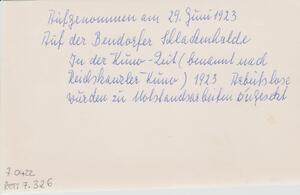 Aufgenommen am 29. Juni 1923
Auf der Bendorfer Schlackenhalde
In der Kuno-Zeit (benannt nach
Reichskanzler Kuno) 1923 Arbeitslose
wurden zu Notstandsarbeiten eingesetzt
7.0422
7.326